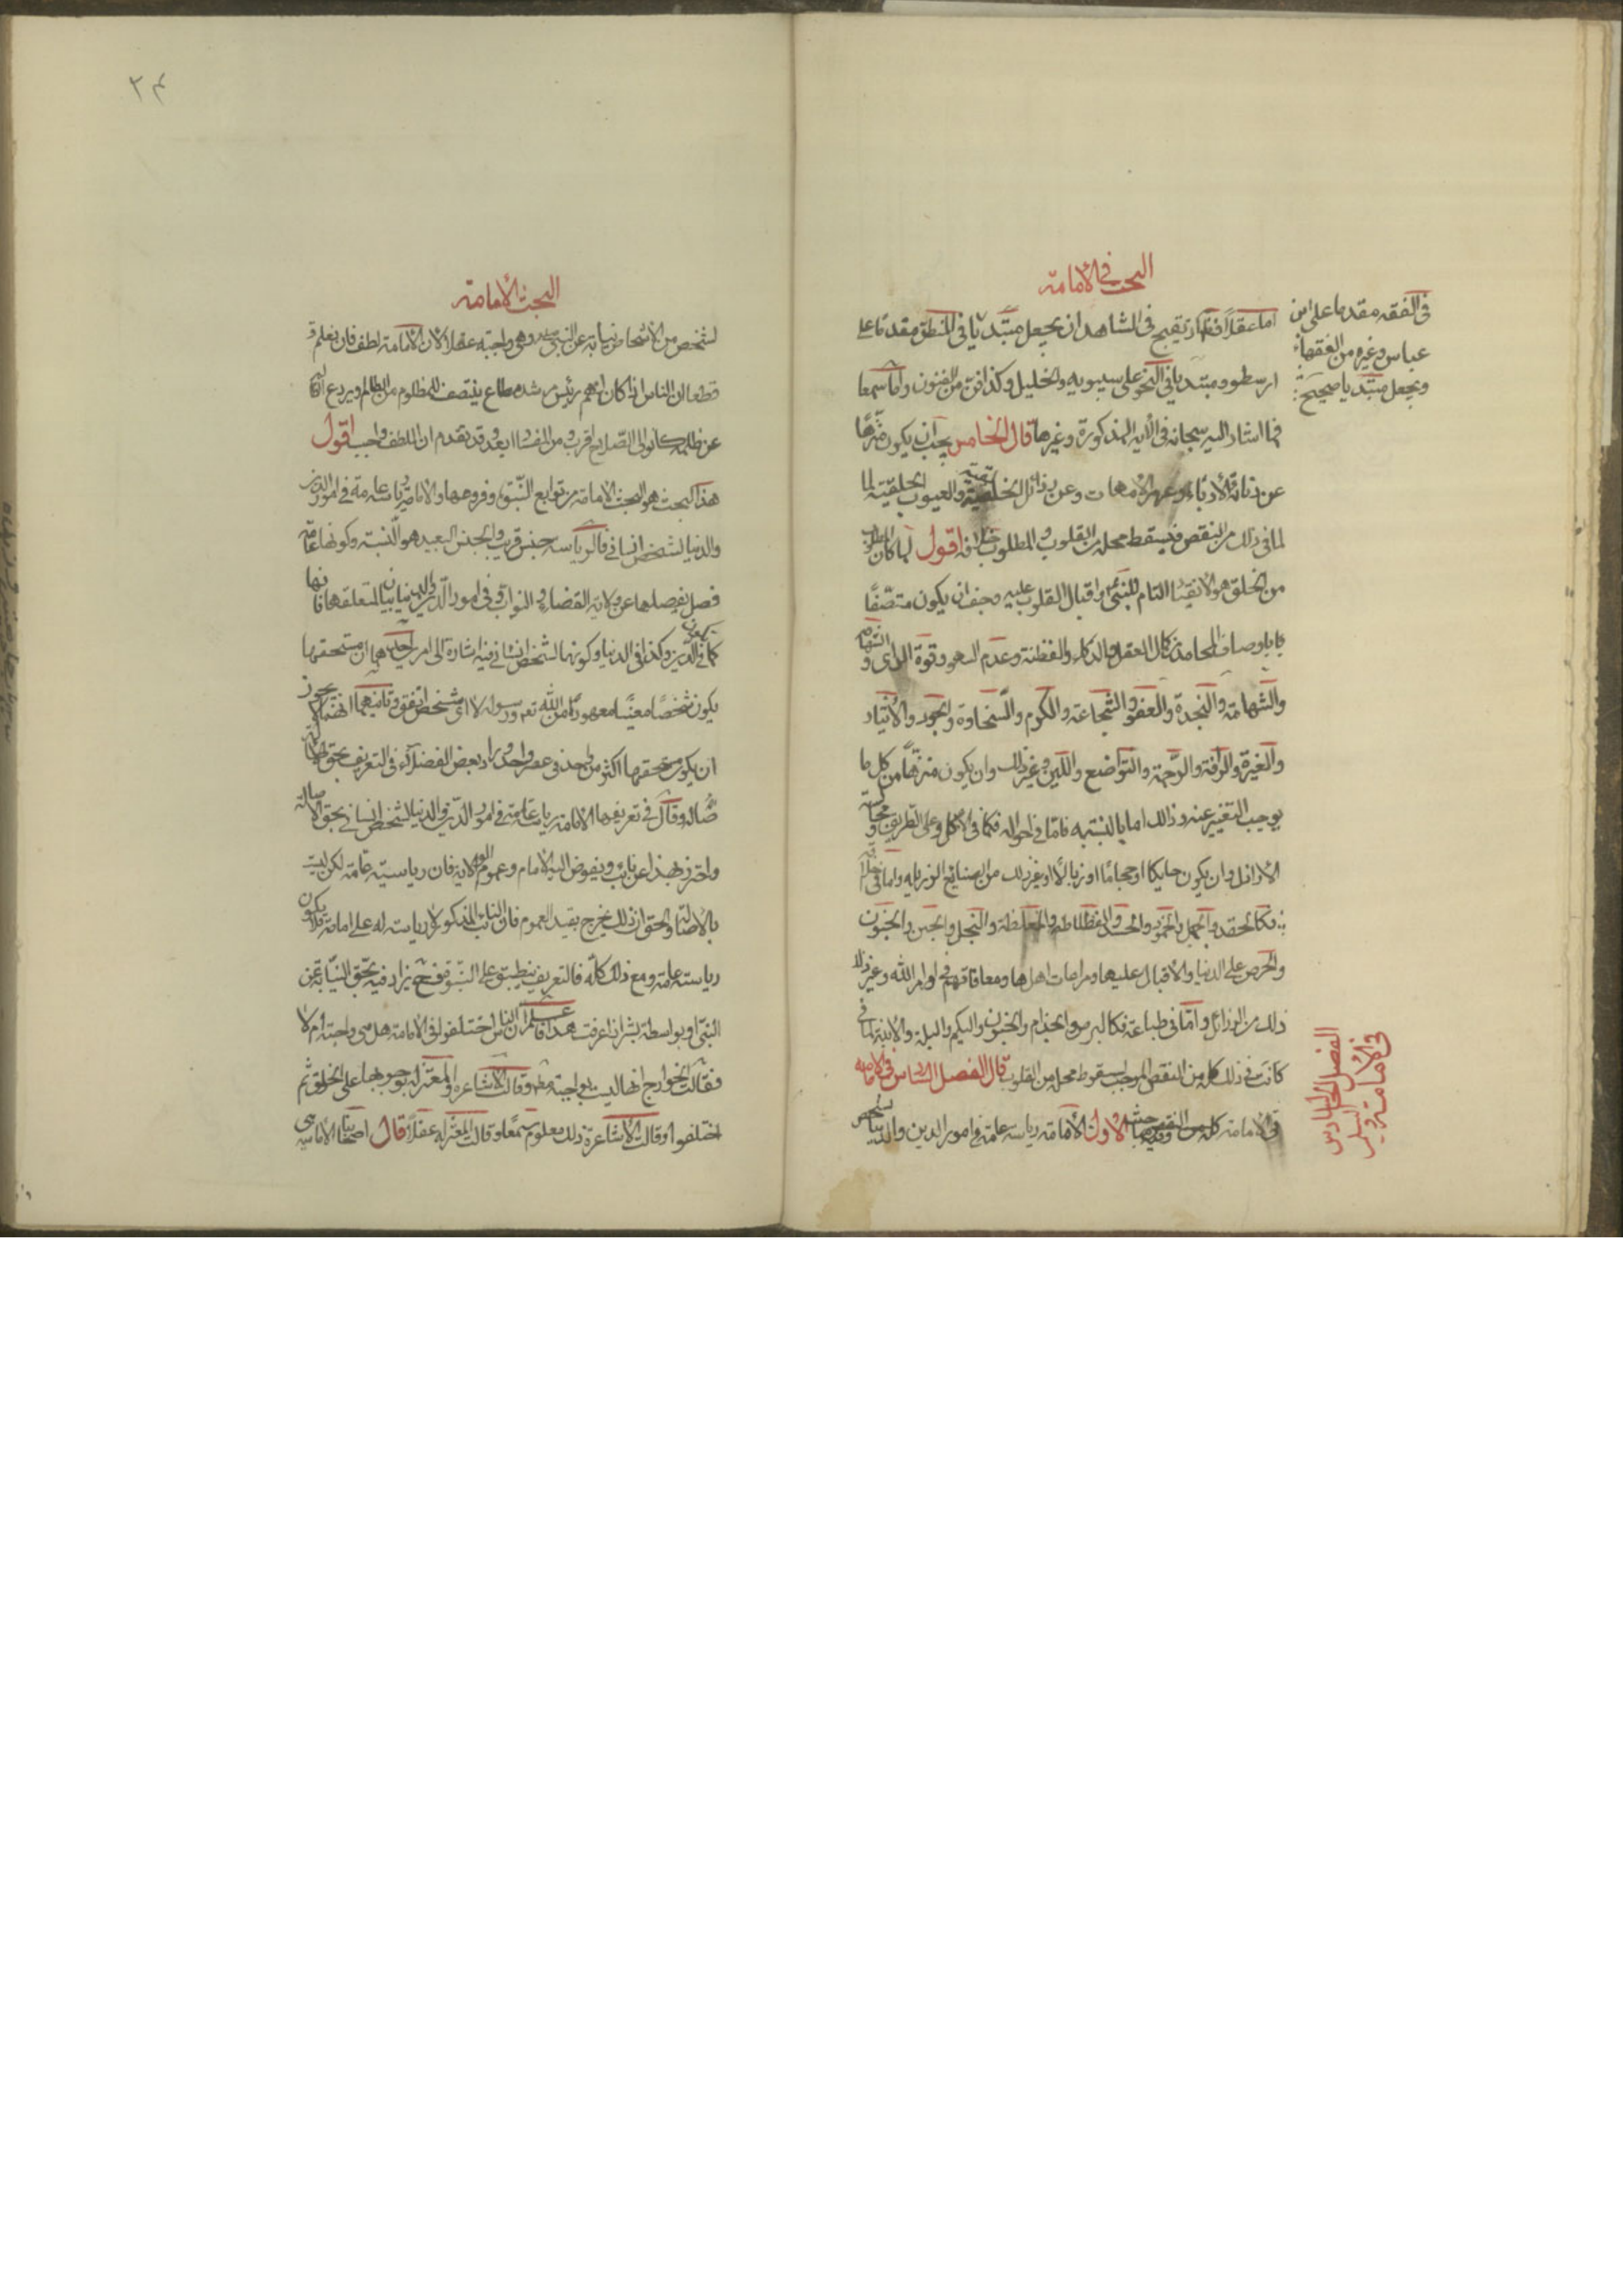 البحث في الأمامة
اما عقلاً فلانه يقبح في الشاهد ان يجعل مبتديا في المنطق مقدما على
ارسطو ومبتديا في النحو على سيبويه والخليل وكذا في كل من الفنون واما سمعا
فما اشار اليه سبحانه في الايه المذكورة وغيرها قال الخامس يجب ان يكون منزها
عن دنائة الأدباء وعهر الأمهات وعن رذائل الخلقية والعيوب الخلقية لما
لما في ذلك من النقص فيسقط محله من القلوب والمطلوب خلافه اقول لما كان المطلوب
من الخلق هو الانقياد التام للنبي واقبال القلوب عليه وجب ان يكون متصفًا
باوصاف المحامد من كمال العقل والذكاء والفطنة وعدم السهو وقوة الراى و
والشهامة والنجدة والعفو والشجاعة والكرم والسخاوة والجود والأيثار
والغيرة والرافة والرحمة والتواضع واللين وغير ذلك وان يكون منزهًا من كل ما
يوجب التنفير عنه وذالك اما بالنسبه فاما في احواله فكما في الأكل على الطريق ومجالسة
الأراذل وان يكون حايكا او حجامًا او زبالاً او غير ذلك من الصنايع الرذيله واما في اخلاقه
فكالحقد والجهل والحمود والحسد والفظاظه والغلظة والبخل والجبن والجنون
والحرص على الدنيا والأقبال عليها ومراعات اهلها ومعافاتهم في اوامر الله وغير ذلك
ذلك من الرذائل واما في طباعه فكالبرص والجذام والجنون والبكم والبله والأبنة لما في
كانت في ذلك كله من النقص الموجب لسقوط محله من القلوب قال الفصل السادس في الامامه
في الأمامة وفيه مباحث الأول الأمامة رياسه عامة في امور الدين والدنيا لشخص
في الفقه مقدما على ابن
عباس وغيره من الفقهاء
ويجعل مبتديا صحيح
الفصل السادس
في الأمامة
البحث في الأمامة
لشخص من الأشخاص نيابة عن النبي وهي واجبة عقلا لأن الأمامة لطف فان نعلم
قطعا ان الناس اذا كان لهم رئيس مرشد مطاع ينتصف للمظلوم من الظالم ويردع الظالم
عن ظلمه كانوا الى الصلاح اقرب ومن الفساد ابعد وقد تقدم ان اللطف واجب اقول
هذا البحث هو البحث الأمامة من توابع النبوة وفروعها والأمامة رياسة عامة في امور الدين
والدنيا لشخص انساني فالرياسه جنس قريب والجنس البعيد هو النسبة وكونها عامة
فصل يفصلها عن ولاية القضاة والنواب وفي امور الدين والدنيا بيان لمتعلقها فانها
كما في الدين وكذا في الدنيا وكونها لشخص انساني فيه اشارة الى امرين احدهما ان مستحقها
يكون شخصًا معينًا معهودًا من الله تعالى ورسوله لا اى شخص اتفق وثانيهما انه لا يجوز
ان يكون مستحقها اكثر من واحد في عصر واحد وزاد بعض الفضلاء في التعريف بحق
الأصالة وقال في تعريفها الأمامة رياسة عامة في امور الدين والدنيا لشخص انساني بحق الأصالة
واحترز بهذا عن نائب ويفوض اليه الأمام وعموم الولاية فان رياسته عامة لكن ليست
بالأصالة والحق ان ذلك يخرج بقيد العموم فان النائب المذكور لا رياسة له على امامه فلا يكون
رياسته عامة ومع ذلك كله فالتعريف ينطبق على النبوة فح يزاد فيه بحق النيابة عن
النبى او بواسطة بشر اذا عرفت هذا فاعلم ان الناس اختلفوا في الأمامة هل هي واجبة ام لا
فقالت الخوارج انها ليست بواجبة مطلقا وقالت الاشاعرة والمعتزله بوجوبها على الخلق ثم
اختلفوا وقالت الأشاعرة ذلك معلوم سمعًا وقالت المعتزله عقلاً قال اصحابنا الأمامية هي
٢٤